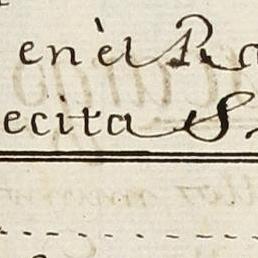 en èl Ra
ecita S.